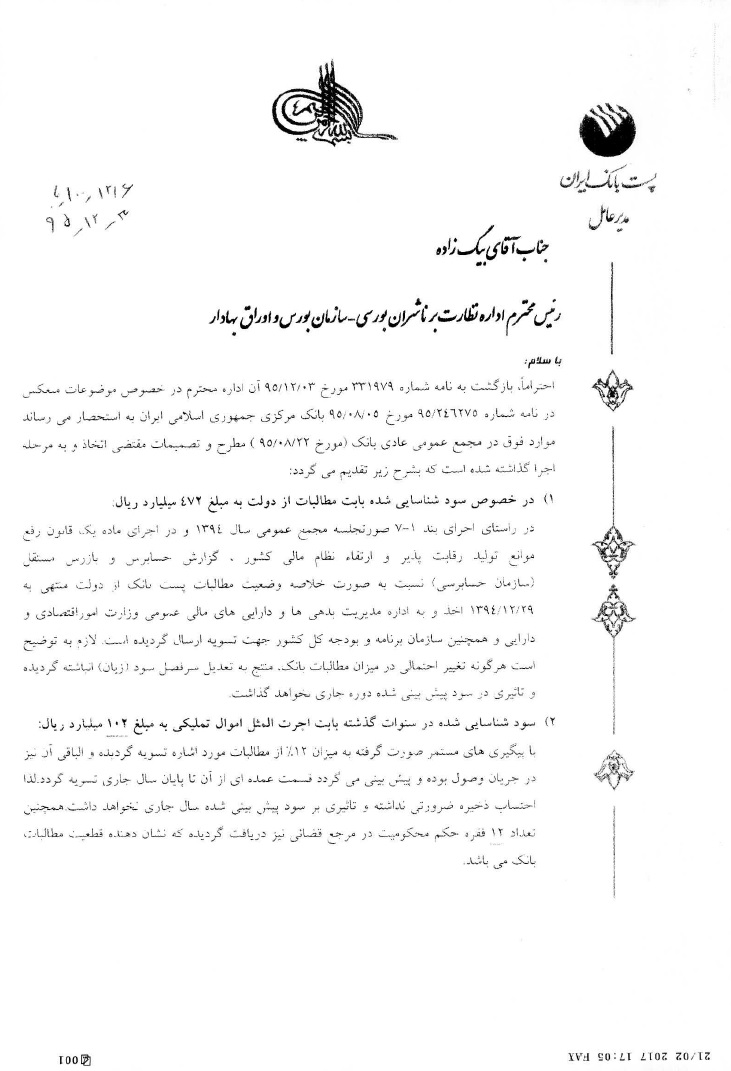 پست بانک ایران
مدیرعامل
۹۵-۱۲-۳
جناب آقای بیگ زاده
رئیس محترم اداره نظارت بر ناشران بورسی-سازمان بورس و اوراق بهادار
با سلام:
احتراماً، بازگشت به نامه شماره ۳۳۱۹۷۹ مورخ ۹۵/۱۲/۰۳ آن اداره محترم در خصوص موضوعات منعکس
در نامه شماره ۹۵/۲۴۶۲۷۵ مورخ ۹۵/۰۸/۰۵ بانک مرکزی جمهوری اسلامی ایران به استحضار می رساند
موارد فوق در مجمع عمومی عادی بانک (مورخ ۹۵/۰۸/۲۲ ) مطرح و تصمیمات مقتضی اتخاذ و به مرحله
اجرا گذاشته شده است که بشرح زیر تقدیم می گردد:
۱) در خصوص سود شناسایی شده بابت مطالبات از دولت به مبلغ ۴۷۲ میلیارد ریال:
در راستای اجرای بند ۱-۷ صورتجلسه مجمع عمومی سال ۱۳۹۴ و در اجرای ماده یک قانون رفع
موانع تولید رقابت پذیر و ارتقاء نظام مالی کشور ، گزارش حسابرس و بازرس مستقل
(سازمان حسابرسی) نسبت به صورت خلاصه وضعیت مطالبات پست بانک از دولت منتهی به
۱۳۹۴/۱۲/۲۹ اخذ و به اداره مدیریت بدهی ها و دارایی های مالی عمومی وزارت اموراقتصادی و
دارایی و همچنین سازمان برنامه و بودجه کل کشور جهت تسویه ارسال گردیده است. لازم به توضیح
است هرگونه تغییر احتمالی در میزان مطالبات بانک، منتج به تعدیل سرفصل سود (زیان) انباشته گردیده
و تاثیری در سود پیش بینی شده دوره جاری نخواهد گذاشت.
۲) سود شناسایی شده در سنوات گذشته بابت اجرت المثل اموال تملیکی به مبلغ ۱۰۲ میلیارد ریال:
با پیگیری های مستمر صورت گرفته به میزان ۱۲٪ از مطالبات مورد اشاره تسویه گردیده و الباقی آن نیز
در جریان وصول بوده و پیش بینی می گردد قسمت عمده ای از آن تا پایان سال جاری تسویه گردد.لذا
احتساب ذخیره ضرورتی نداشته و تاثیری بر سود پیش بینی شده سال جاری نخواهد داشت.همچنین
تعداد ۱۲ فقره حکم محکومیت در مرجع قضائی نیز دریافت گردیده که نشان دهنده قطعیت مطالبات
بانک می باشد.
21/02 2017 17:05 FAX
001